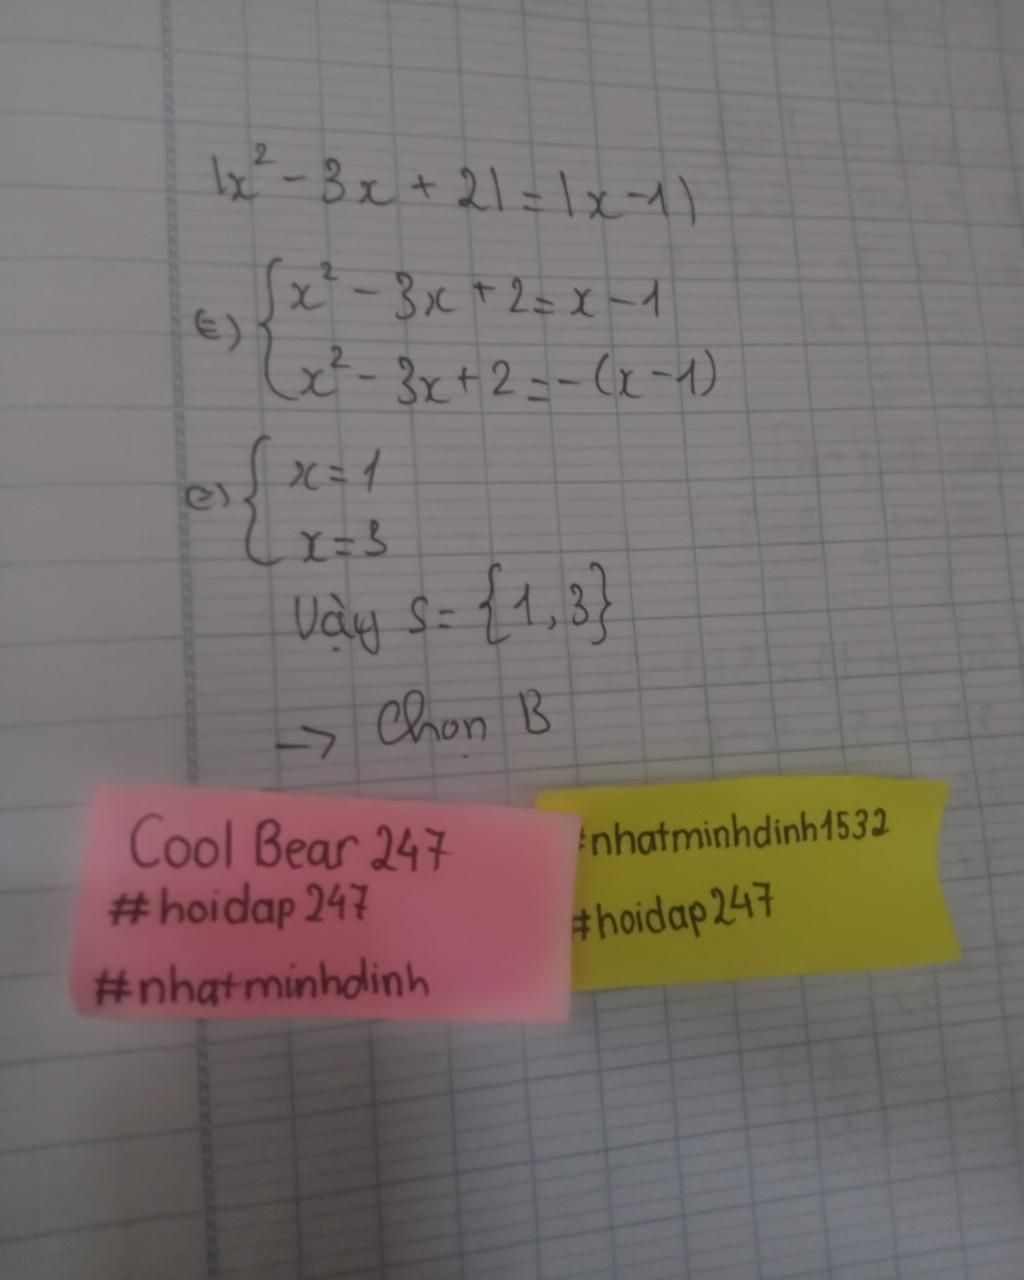 |x² - 3x + 2| = |x - 1|
⇔ { x² - 3x + 2 = x - 1
x² - 3x + 2 = - (x - 1)
⇔ { x = 1
x = 3
Vậy S = {1, 3}
→ Chọn B
Cool Bear 247
#hoidap247
#nhatminhdinh
#nhatminhdinh1532
#hoidap247